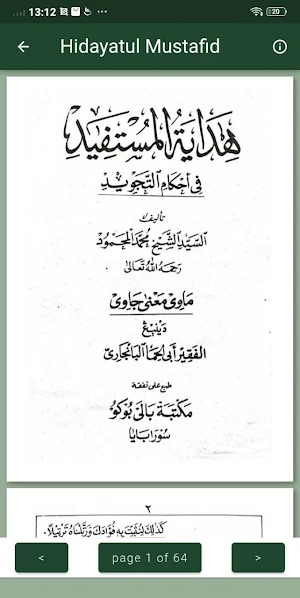 13:12
20
Hidayatul Mustafid
هِدَايَةُ الْمُسْتَفِيْدِ
فِى أَحْكَامِ التَّجْوِيْدِ
تأليف
السَّيِّدِ الشَّيْخِ مُحَمَّدِ الْمَحْمُوْدِ
رَحِمَهُ اللهُ تَعَالَى
مَاوِى مَعْنَى جَاوِى
دَيْنِيْڠْ
الفَقِيْر أَبِى
طبع على نفقة
مَكْتَبَة بَالَى بُوْكُوْ
سُوْرَابَايَا
٢
كَذٰلِكَ لِنُثَبِّتَ بِهِ فُؤَادَكَ وَرَتَّلْنَاهُ تَرْتِيْلًا.
<
page 1 of 64
>